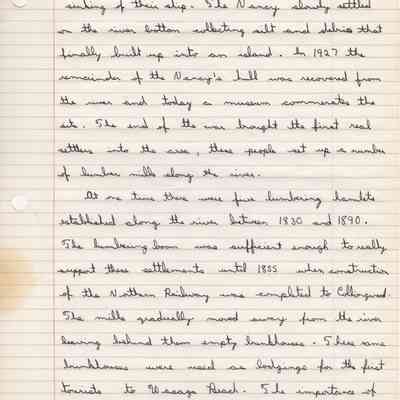 sinking of their ship. The Nancy slowly settled
on the river bottom collecting silt and debris that
finally built up into an island. In 1927 the
remainder of the Nancy's hull was recovered from
the river and today a museum commerates the
site. The end of the war brought the first real
settlers into the area, these people set up a number
of lumber mills along the river.
At one time there were five lumbering hamlets
established along the river between 1830 and 1890.
The lumbering boom was sufficient enough to really
support these settlements until 1855 when construction
of the Northern Railway was completed to Collingwood.
The mills gradually moved away from the river
leaving behind them empty bunkhouses. These same
bunkhouses were used as lodgings for the first
tourists to Wasaga Beach. The importance of